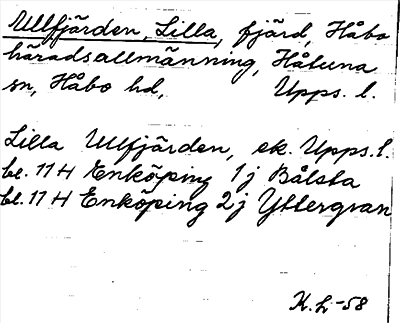 Ullfjärden, Lilla, fjärd, Håbo
häradsallmänning, Håtuna
sn, Håbo hd, Upps. l.
Lilla Ullfjärden, ek. Upps. l.
bl. 11 H Enköping 1 j Bålsta
bl. 11 H Enköping 2 j Yttergran
K. L -58